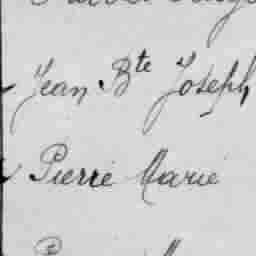 Jean Bte Joseph
Pierre Marie